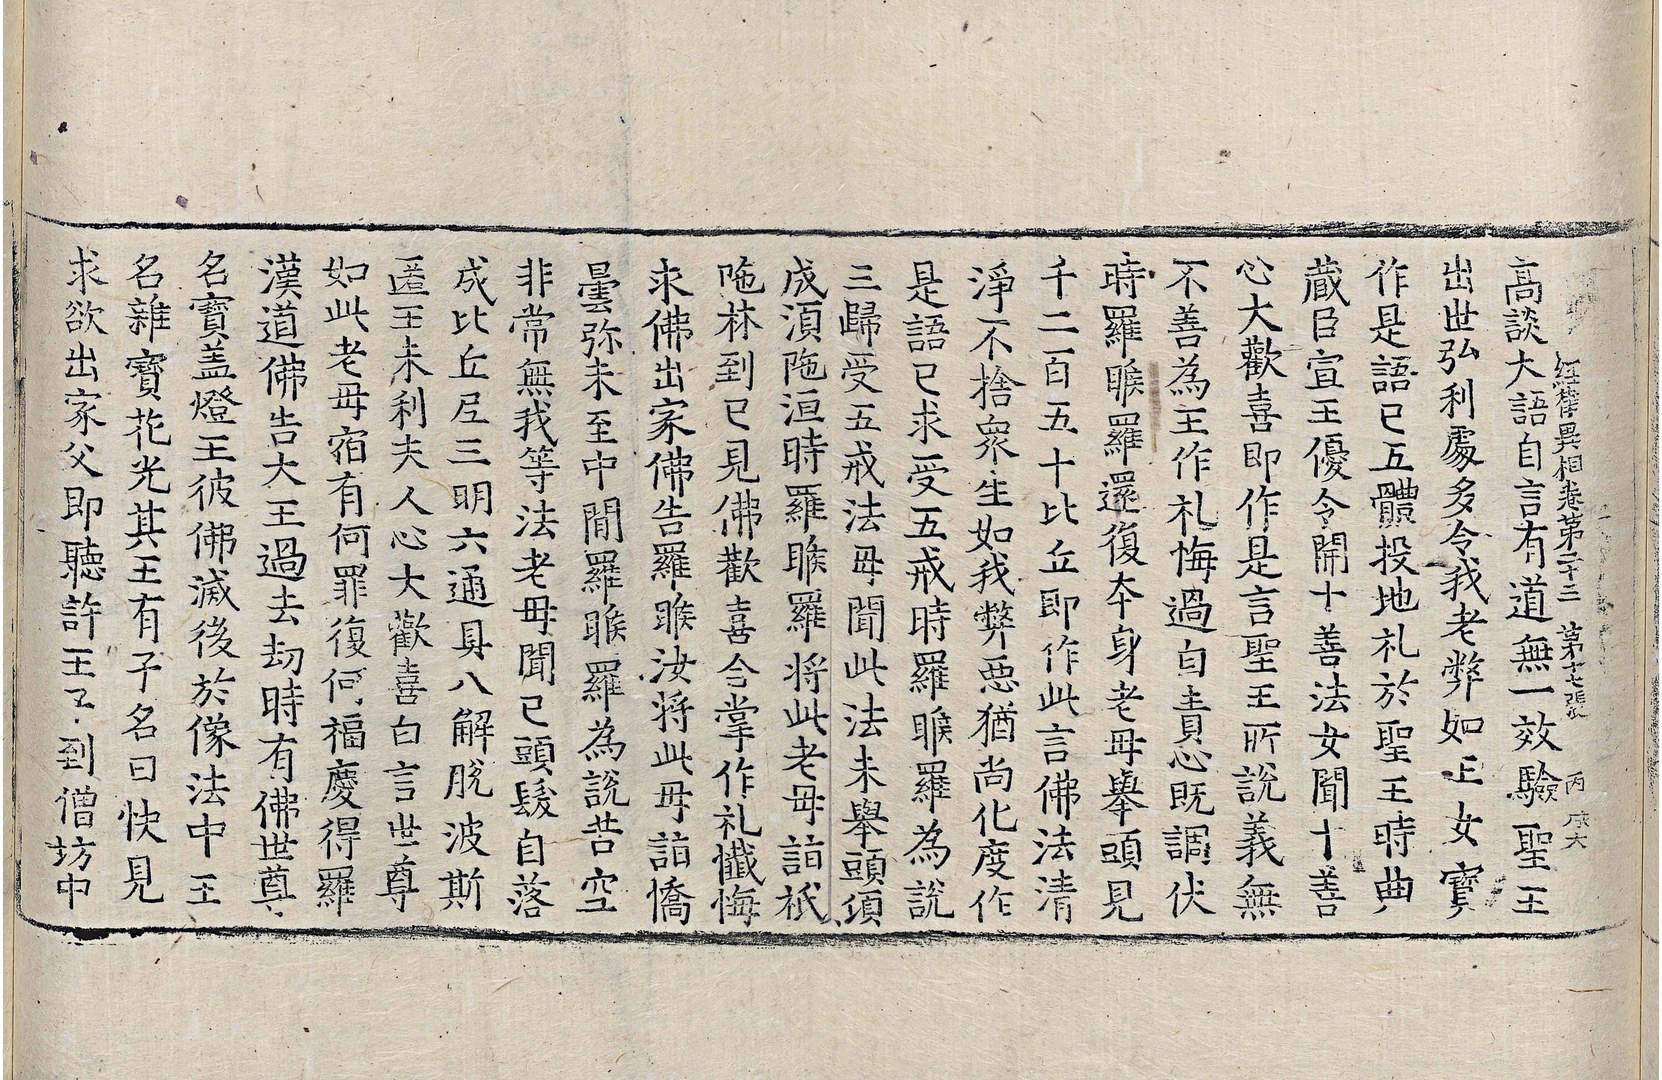 經律異相卷第二十三 第十七張 丙
高談大語自言有道無一效驗聖王
出世弘利處多令我老弊如玉女寶
作是語已五體投地礼於聖王時典
蔵臣宣王優令開十善法女聞十善
心大歡喜即作是言聖王所說義無
不善為王作礼悔過自責心既調伏
時羅睺羅還復本身老母舉頭見
千二百五十比丘即作此言佛法清
淨不捨衆生如我弊惡猶尚化度作
是語已求受五戒時羅睺羅為說
三歸受五戒法母聞此法未舉頭頃
成湏陁洹時羅睺羅將此老母詣祇
陁林到已見佛歡喜合掌作礼懺悔
求佛出家佛告羅睺汝將此母詣憍
曇弥未至中間羅睺羅為說苦空
非常無我等法老母聞已頭髮自落
成比丘尼三明六通具八解脫波斯
匿王末利夫人心大歡喜白言世尊
如此老母宿有何罪復何福慶得羅
漢道佛告大王過去劫時有佛世尊
名寶盖燈王彼佛滅後於像法中王
名雜寶花光其王有子名曰快見
求欲出家父即聽許王子到僧坊中